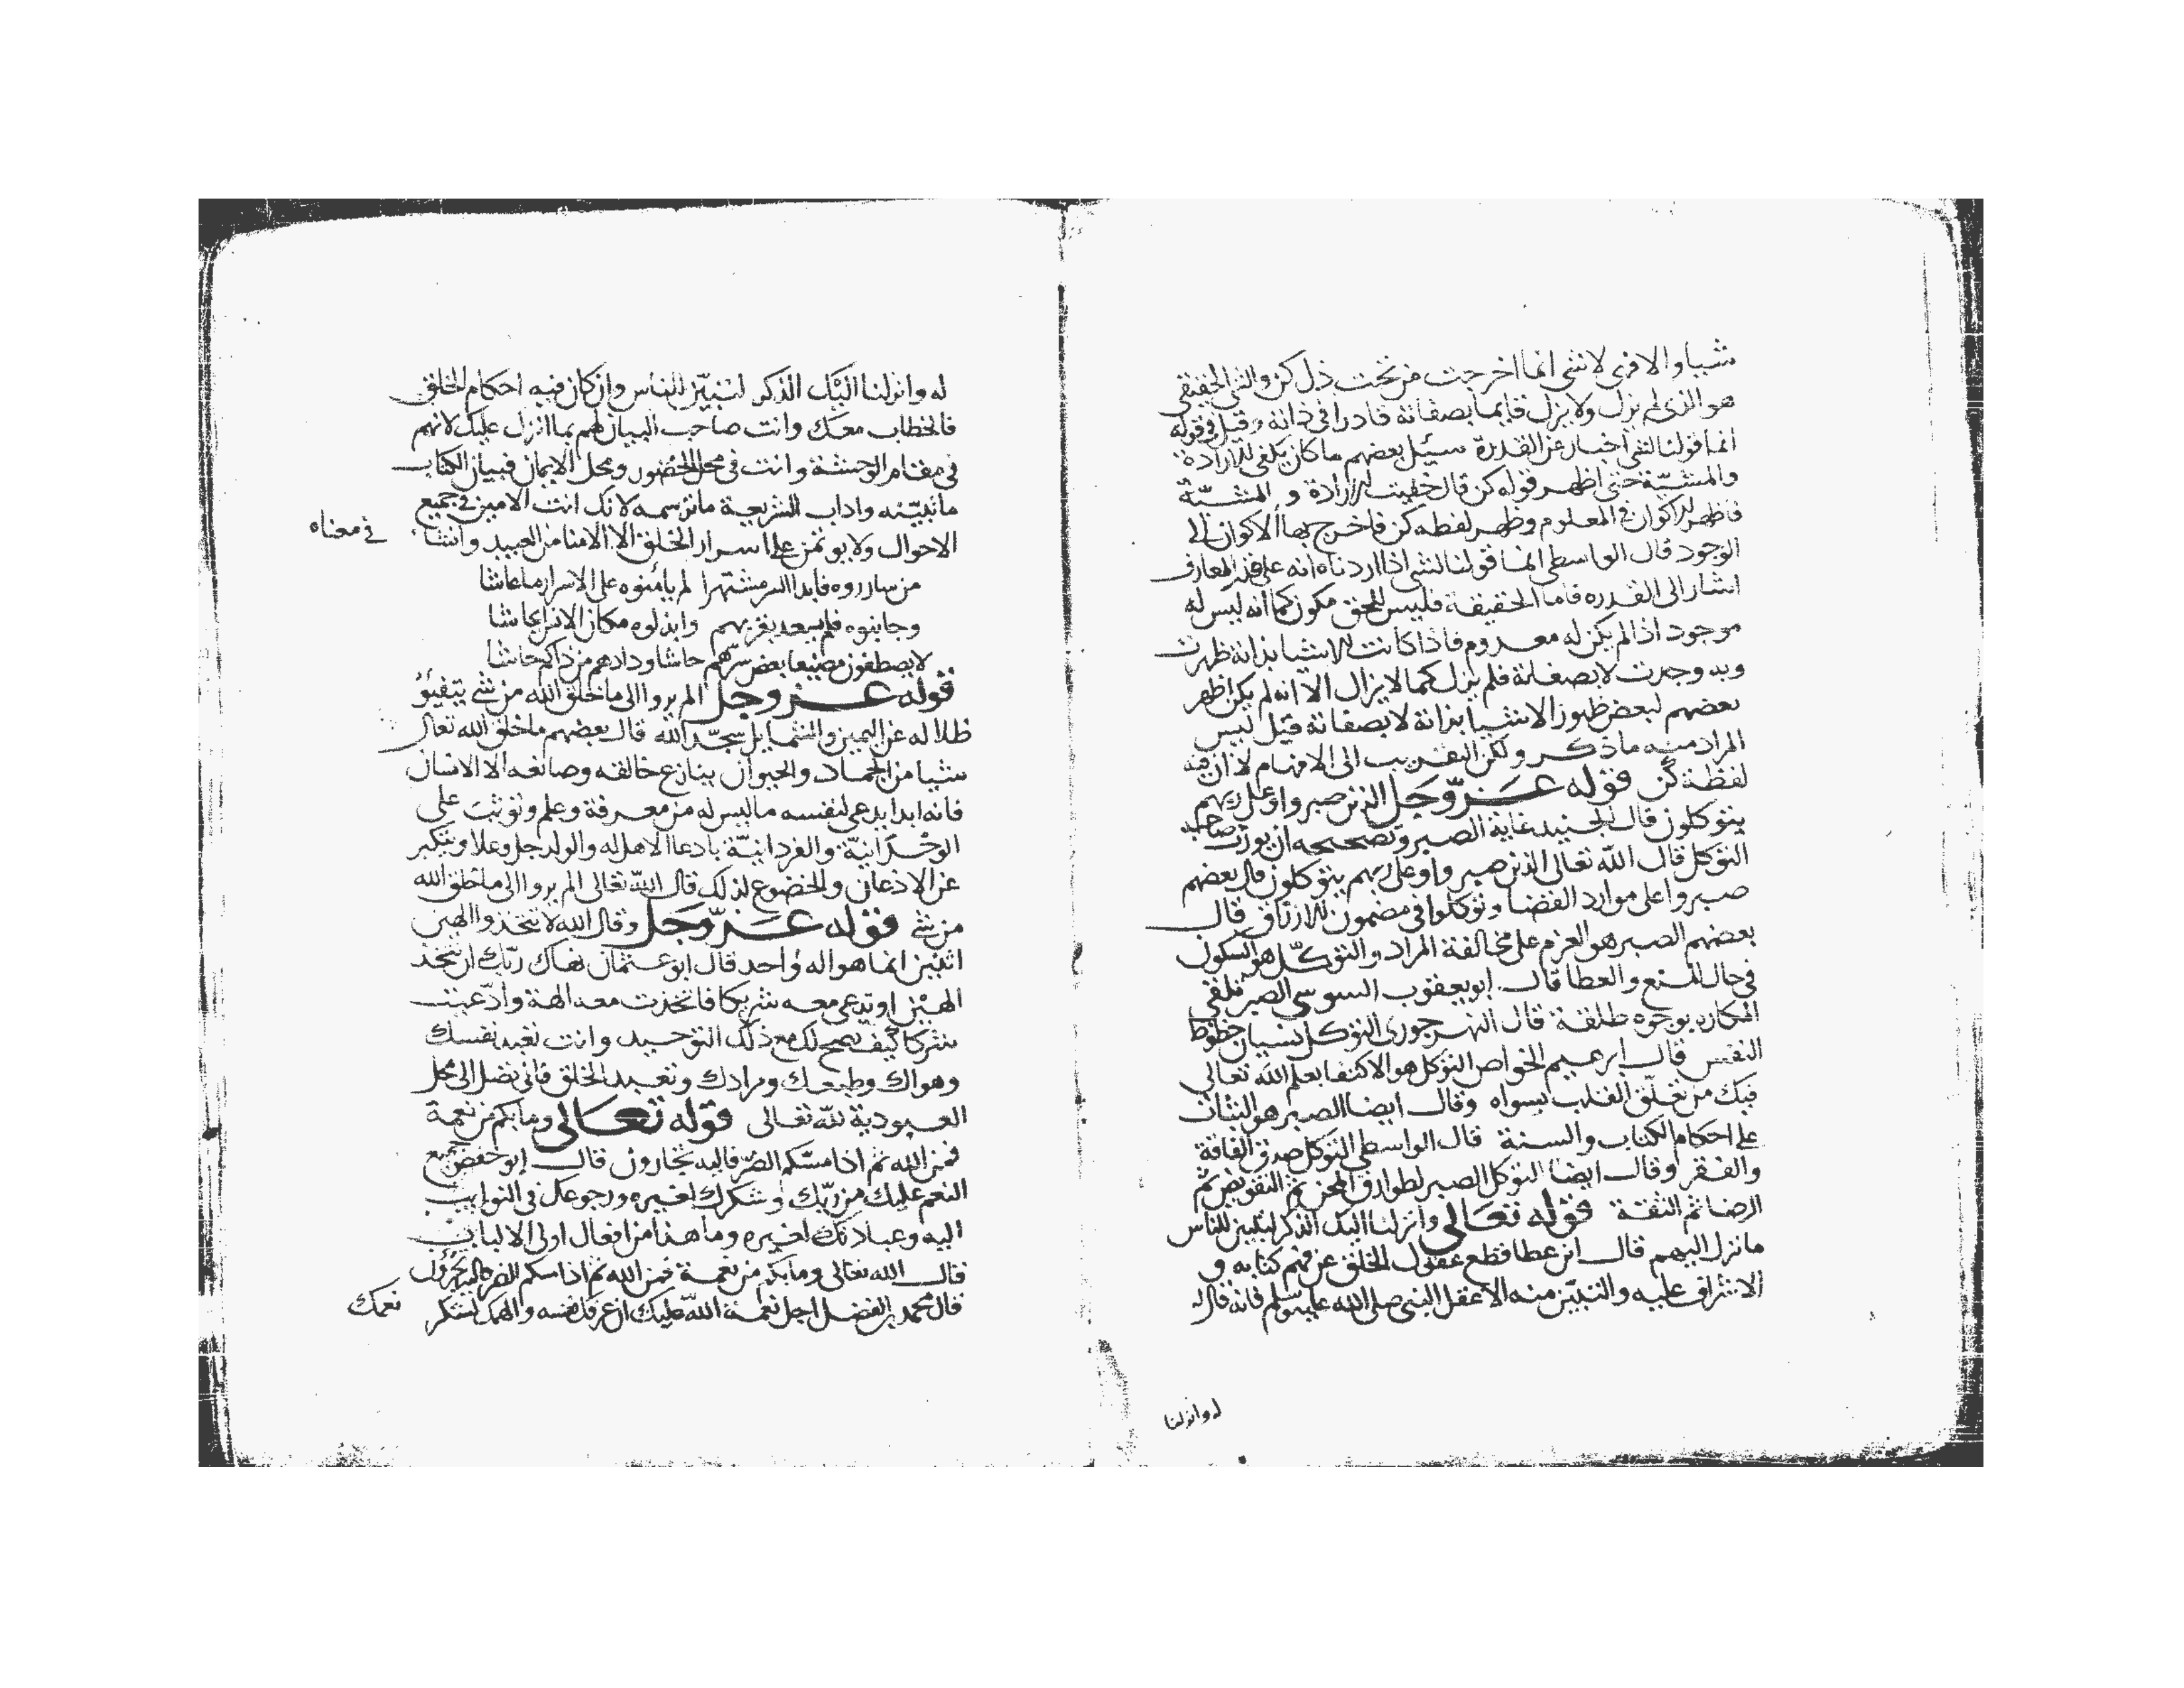 شيا والا فهى لاشى انما اخرجت من تحت ذل كن والشى الحقيقى
هو الذى لم يزل ولا يزل قايما بصفاته قادرا فى ذاته وقيل فى قوله
انما قولنا لشى اخبار عن القدرة سئيل بعضهم ما كان يكفى للارادة
والمشيّة حتى اظهر قوله كن قال خفيت الارادة و المشيّة
فاظهر الاكوان فى المعلوم وظهر لفظه كن فاخرج بها الاكوان الى
الوجود قال الواسطى انما قولنا لشى اذا اردناه انه على قدر المعارف
اشار الى القدره فاما الحقيقة فليس للحق مكون كما انه ليس له
موجود اذا لم يكن له معدوم فاذا كانت الاشيا بذاته ظهرت
وبه وجدت لا بصفاته فلم يزل كما لا يزال الا انه لم يكن اظهر
بعضهم لبعض ظهور الاشيا بذاته لا بصفاته قيل ليس
المراد منه ما ذكر ولكن التقريب الى الافهام لا ان فيه
لفظة كن قوله عَزّوجَل الذين صبروا وعلى ربهم
يتوكلون قال الجنيد غاية الصبر وتصحيحه ان يورث صاحبه
التوكل قال الله تعالى الذين صبروا وعلى ربهم يتوكلون قال بعضهم
صبروا على موارد القضا وتوكلوا فى مضمون الارزاق قال
بعضهم الصبر هو العزم على مخالفة المراد والتوكّل هو السكون
فى حال المنع والعطا قال ابو يعقوب السوسى الصبر تلقى
المكاره بوجوه طلقة قال النهرجورى التوكل نسيان حظوظ
النفس قال ابرهيم الخواص التوكل هو الاكتفا بعلم الله تعالى
فيك من تعلّق القلب بسواه وقال ايضا الصبر هو الثبات
على احكام الكتاب والسنة قال الواسطى التوكل صدق الفاقة
والفقر وقال ايضا التوكل الصبر لطوارق المحن ثم التفويض ثم
الرضا ثم الثقة قوله تعَالى وانزلنا اليك الذكر لتبين للناس
ما نزل اليهم قال ابن عطا قطع عقول الخلق عن فهم كتابه و
الاشراق عليه والتبيّن منه الا عقل النبى صلى الله عليه وسلم فانه قال
له وانزلنا
له وانزلنا اليَك الذكر لتبيّن للناس وان كان فيه احكام الخلق
فالخطاب معك وانت صاحب البيان لهم بما انزل عليك لانهم
فى مقام الوحشة وانت فى محل الحضور ومحل الايمان فبيان الكتاب
ما تبيّنه واداب الشريعة ما ترسمه لانك انت الامين فى جميع
الاحوال ولا يوتمن على اسرار الخلق الا الامنا من العبيد وانشا
فى معناه
من سارروه فابدا السر مشتهرا لم يأمنوه على الاسرار ما عاشا
وجانبوه فلم يسعد بقربهم وابدلوه مكان الانس ايحاشا
لا يصطفون مضيعا بعض سرهم حاشا ودادهم من ذاكم حاشا
قوله عزوجل الم يروا الى ما خلق الله من شى يتفيّؤ
ظلاله عن اليمين والشمايل سجّدا لله قال بعضهم ما خلق الله تعالى
شيا من الجماد والحيوان ينازع خالقه وصانعه الا الانسان
فانه ابدا يدعى لنفسه ما ليس له من معرفة وعلم وتوثبت على
الوحْدانيّة والفردانيّة بادعا الاهل له والولد جل وعلا ويتكبر
عن الاذعان والخضوع لذلك قال الله تعالى الم يروا الى ما خلق الله
من شى قوله عَزّوجَل وقال الله لا تتخذوا الهين
اثنين انما هو اله واحد قال ابو عثمان نهاك ربّك ان تتخذ
الهين او تدعى معه شريكا فاتخذت معه الهة وادّعيت
شركا كيف يصح لك مع ذلك التوحيد وانت تعبد نفسك
وهواك وطبعك ومرادك وتعبد الخلق فانى تصل الى محل
العبودية لله تعالى قوله تعَالى وما بكم من نعمة
فمن الله ثم اذا مسّكم الضرّ فاليه تجارون قال ابو حفص جميع
النعم عليك من ربّك وشكرك لغيره ورجوعك فى النوايب
اليه وعبادتك لغيره وما هذا من افعال اولى الالباب
قال الله تعالى وما بكم من نعمة فمن الله ثم اذا مسكم الضر فاليه تجرُون
قال محمد بن الفضل اجل نعمة الله عليك ان عرفك نفسه والهمك لشكر
نعمك